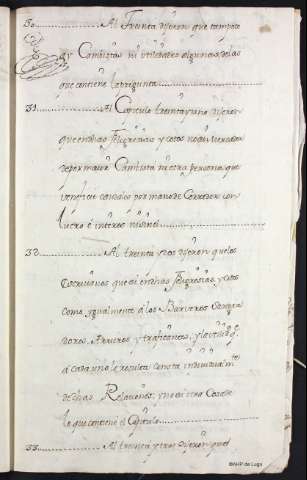 30. Al Treinta dijeron que tampoco
ay Cambistas ni utilidades algunas de las
que contiene la pregunta
31. Al Capitulo treinta y uno dijeron
que en dhas Feligresias y cotos no ay mercader
de por maior Cambista ni otra persona que
beneficie caudales por mano de Corredor con
lucro e interes ninguno
32. Al treinta y dos dijeron que los
Escrivanos que ai en dhas Feligresias, y cotos
como, ygualmente a los Barveros Sangra
dores, Arrieros y traficantes, y la utilidad q.e
a cada uno le resulta consta individualm.te
de dhas Relaciones, y no ai otra Cosa de
lo que contiene el Capitulo
33. Al treinta y tres dijeron que
©AHP de Lugo